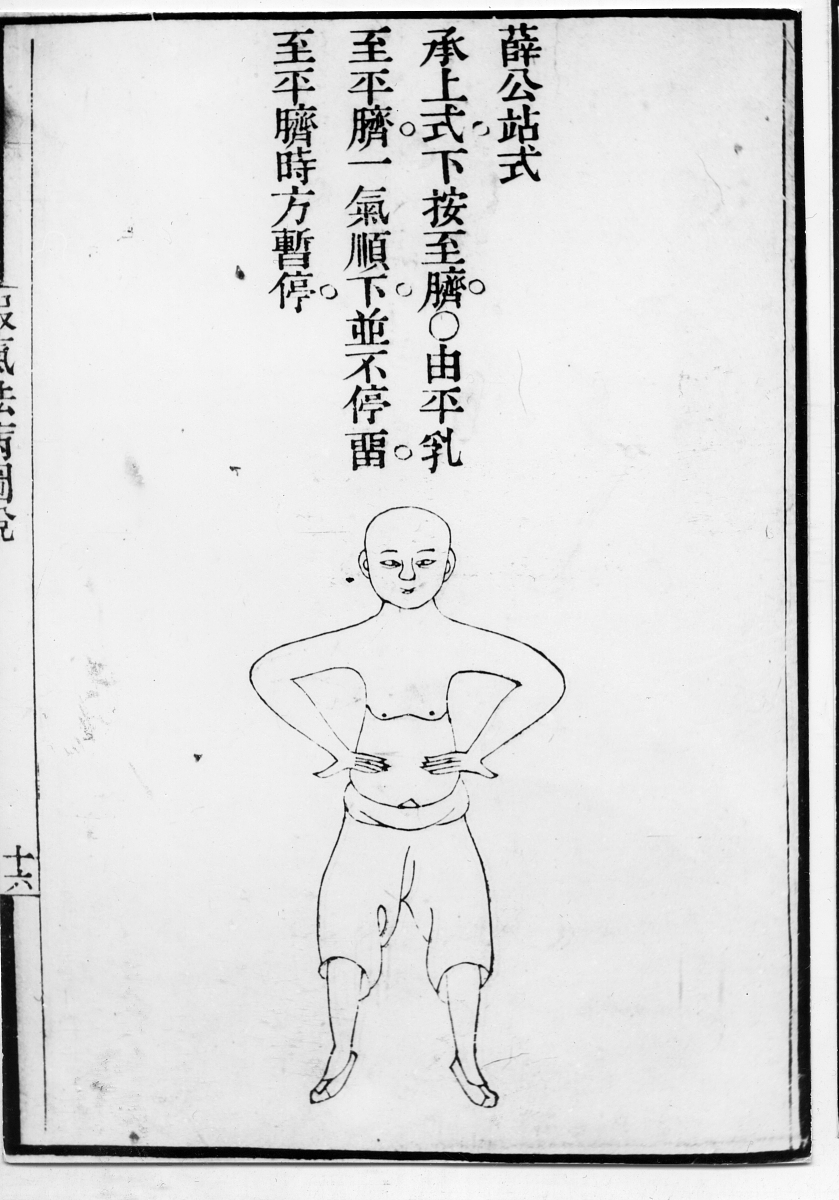 薛公站式
承上式下按至臍〇由平乳
至平臍一氣順下並不停畱
至平臍時方暫停
服氣祛病圖說
十六